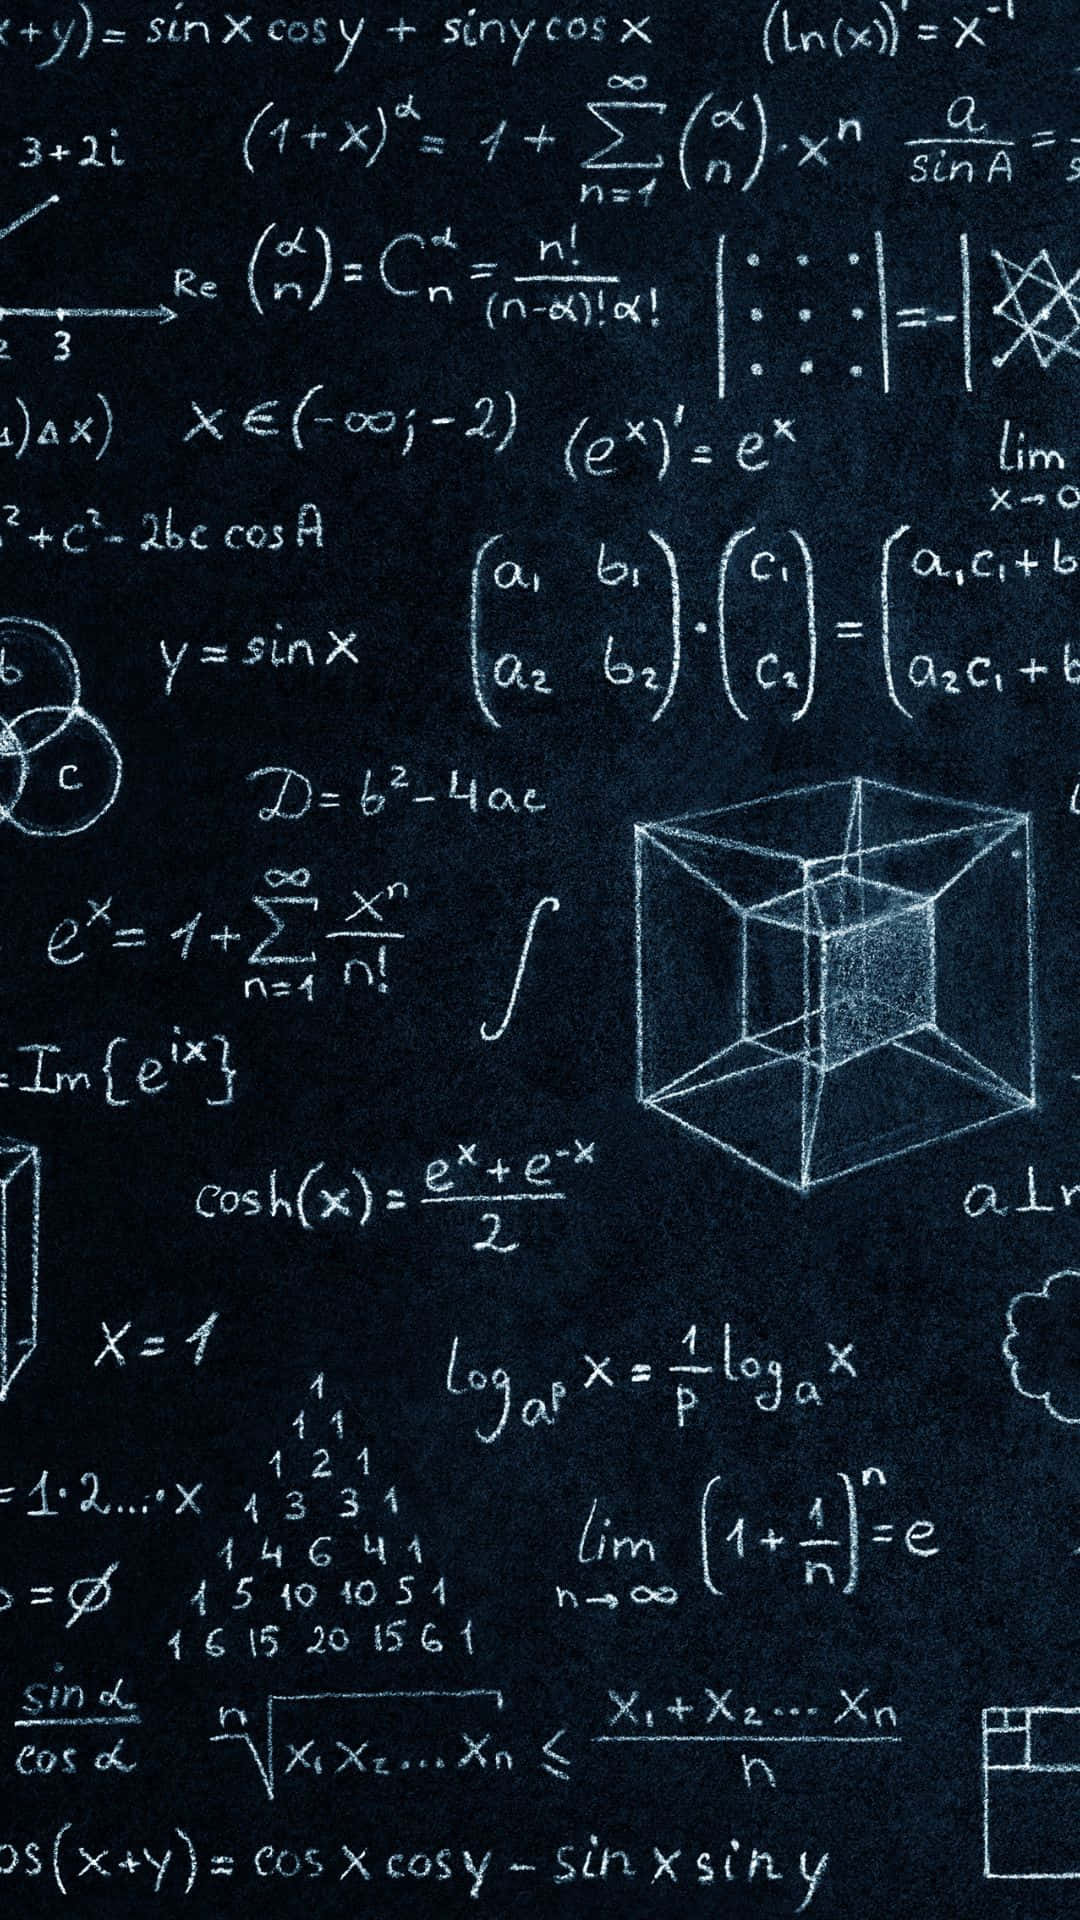 x+y) = sin x cos y + sin y cos x
(ln(x))' = x⁻¹
3+2i
(1+x)^α = 1 + ∞ ∑ n=1 (α n) · xⁿ
a / sin A =
Re
(α n) = C^α_n = n! / (n-α)!α!
= -
2 3
)Δx)
x ∈ (-∞; -2)
(eˣ)' = eˣ
lim
x→0
² + c² - 2bc cos A
(a₁ b₁ a₂ b₂) · (c₁ c₂) = (a₁c₁ + b a₂c₁ + b
y = sin x
b
c
D = b² - 4ac
eˣ = 1 + ∞ ∑ n=1 xⁿ / n!
∫
= Im{e^ix}
cosh(x) = eˣ + e⁻ˣ / 2
a⊥n
x = 1
log_aᵖ x = 1/p log_a x
1
1 1
1 2 1
= 1·2...·x
1 3 3 1
1 4 6 4 1
lim n→∞ (1 + 1/n)ⁿ = e
= ∅
1 5 10 10 5 1
1 6 15 20 15 6 1
sin α / cos α
ⁿ√x₁x₂...xₙ ≤ x₁+x₂...xₙ / n
os(x+y) = cos x cos y - sin x sin y